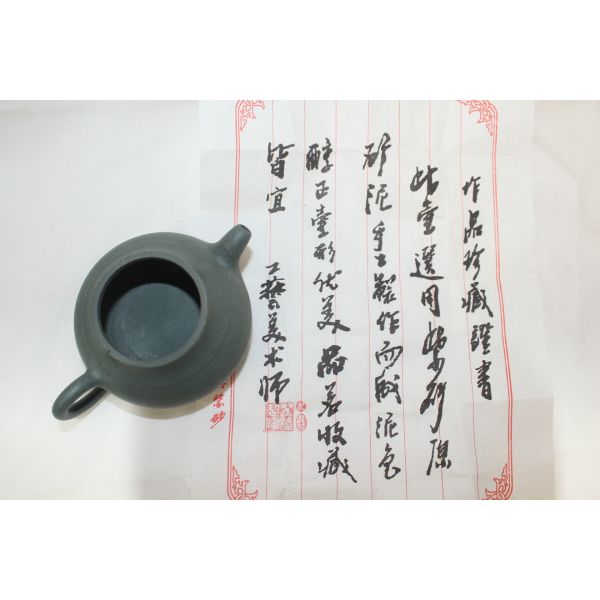 作品珍藏證書
此壷選用紫砂原
矿泥手工製作而成泥色
醇正壷形优美品茗收藏
皆宜
工藝美术师
紫砂